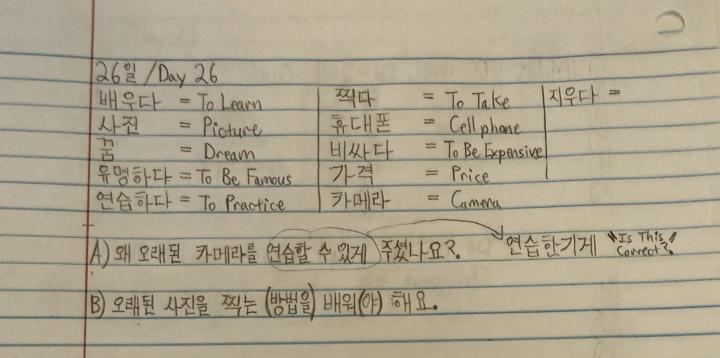 26일 / Day 26
배우다 = To Learn
사진 = Picture
꿈 = Dream
유명하다 = To Be Famous
연습하다 = To Practice
찍다 = To Take
휴대폰 = Cellphone
비싸다 = To Be Expensive
가격 = Price
카메라 = Camera
지우다 =
A) 왜 오래된 카메라를 연습할 수 있게 주셨나요?. 연습한기게 "Is This Correct?"
B) 오래된 사진을 찍는 (방법을) 배워(야) 해요.